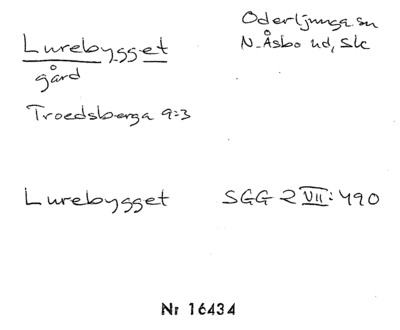 Lurebygget
gård
Oderljunga sn
N. Åsbo hd, Sk
Troedsberga 9:3
Lurebygget SGG 2 VII: 490
Nr 16434